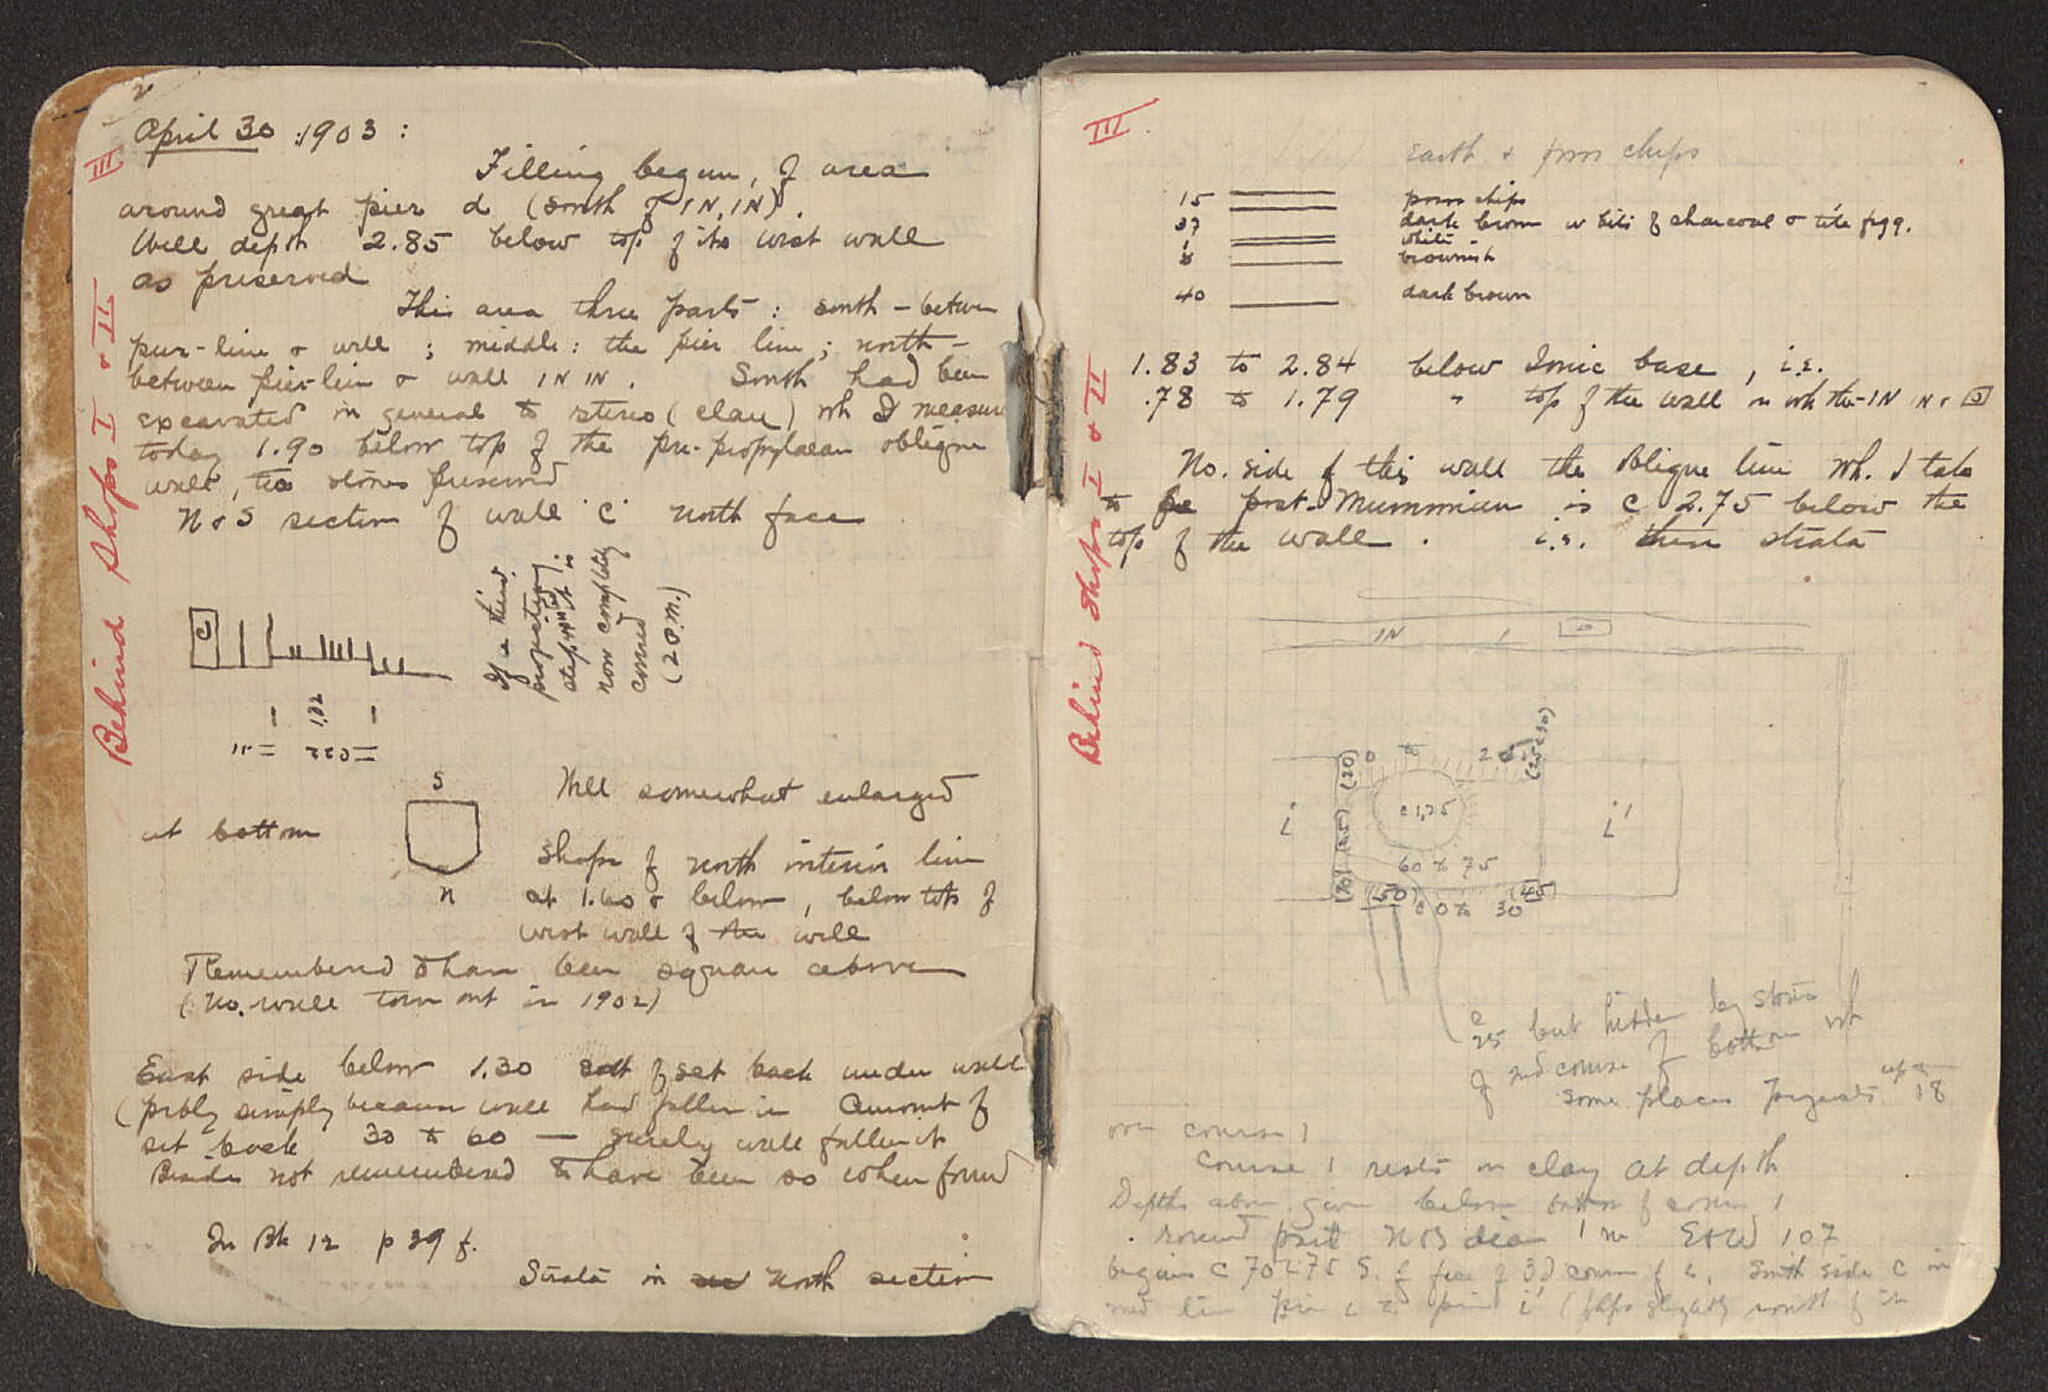 2
April 30 : 1903 :
III
Behind Shops I + II
Filling begun, of area
around great pier d (south of IN, IN).
Well depth 2.85 below top of its west wall
as preserved
This area three parts : south - between
pier-line + well ; middle : the pier line ; north -
between pier-line + wall IN IN . South had been
excavated in general to stereo (clay) wh I measure
today 1.90 below top of the pre-propylaean oblique
wall, two stones preserved
N + S section of wall 'C' north face
C
If a third
projecting
step it is
now completely
covered
(2 P.M.)
1.02
S
Well somewhat enlarged
at bottom
N
Shape of north interior line
at 1.60 + below, below top of
west wall of the well
Remembered to have been square above
(No. wall torn out in 1902)
East side below 1.30 set back under wall
(probly simply because wall had fallen in Amount of
set back 30 to 60 — surely wall fallen it
Besides not remembered to have been so when found
In Bk 12 p 39 f.
Strata in north section
III
Behind Shops I + II
Earth + poros chips
15 poros chips
37 dark brown w bits of charcoal + tile frgg.
1 white
8 brownish
40 dark brown
1.83 to 2.84 below Ionic base, i.e.
.78 to 1.79 " top of the wall in wh the IN IN +
No. side of this wall the oblique line wh. I take
to be post-Mummian is c 2.75 below the
top of the wall . i.e. these strata
IN
(20) 0 to 2
i c 1,25 i'
60 to 75
(50) (45)
c 0 to 30
c
25 but hidden by stones
of 2nd course of bottom wh
some places projects up to 18
over course 1
course 1 rests on clay at depth
Depths above given below bottom of course 1
round pit N+S diam 1 m E+W 107
begins c 70-75 S. of face of 3d course of i, South side c in
med line pier i to pier i' (perhaps slightly north of it